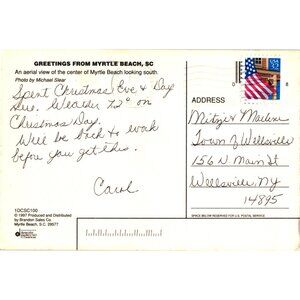 GREETINGS FROM MYRTLE BEACH, SC
An aerial view of the center of Myrtle Beach looking south.
Photo by Michael Slear
Spent Christmas Eve & Day
here. Weather 72° on
Christmas Day.
We'll be back to work
before you get this.
Carol
1DCSC100
© 1997 Produced and Distributed
by Brandon Sales Co.
Myrtle Beach, S.C. 29577
USA
32
08
ADDRESS
Mitzi & Marlene
Town of Wellsville
156 N Main St
Wellsville, NY
14895
SPACE BELOW RESERVED FOR U.S. POSTAL SERVICE